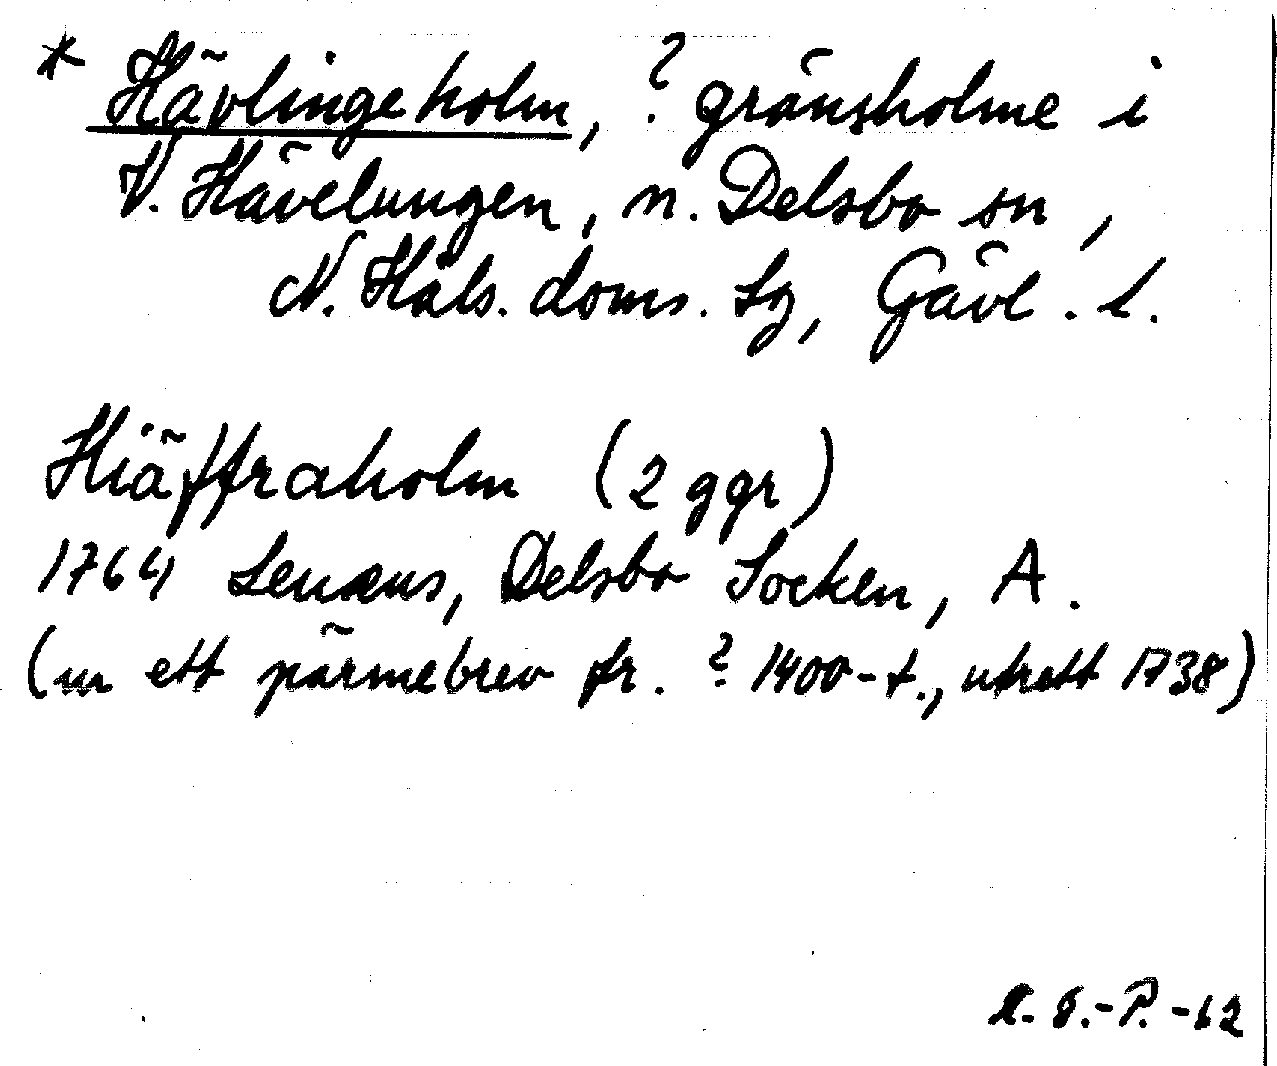 * Hävlingeholm, ? gränsholme i
V. Hävelungen, n. Delsbo sn,
N. Häls. doms. lg, Gävl. l.
Hiäffraholm (2 ggr)
1764 Lenæus, Delsbo Socken, A.
(ur ett pärmebrev fr. ? 1400-t., utrett 1738)
-P. -62